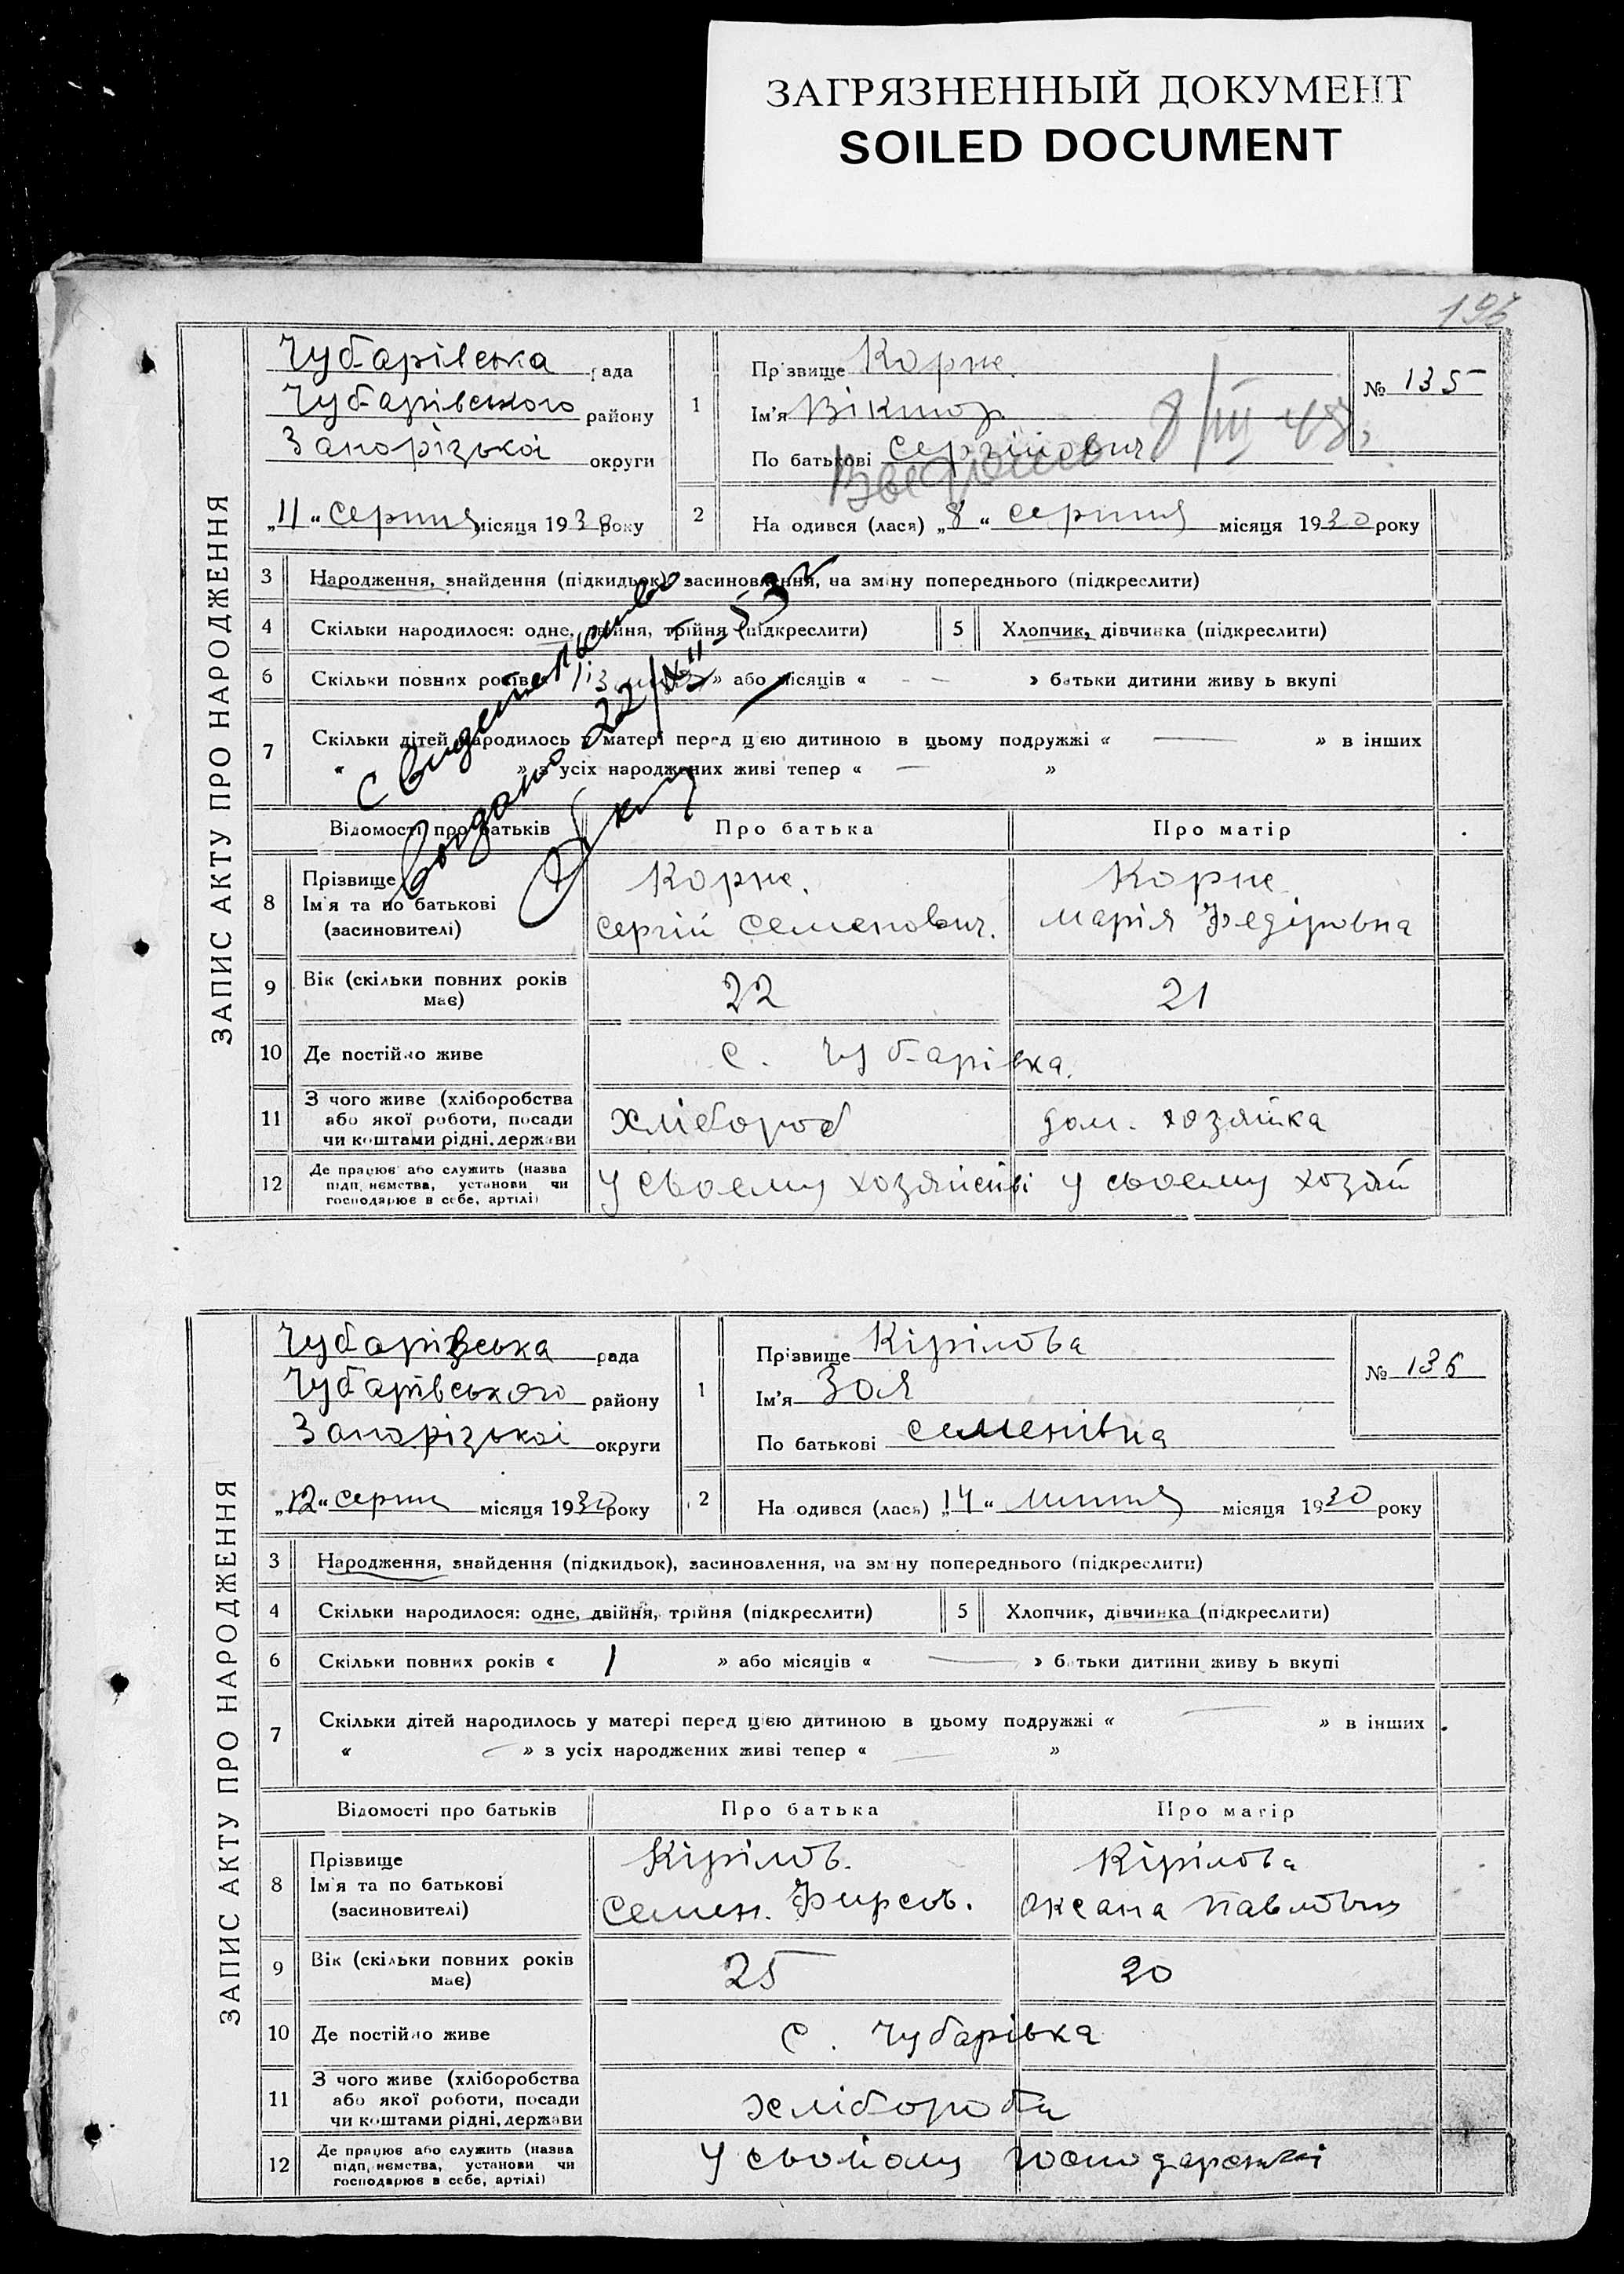 ЗАГРЯЗНЕННЫЙ ДОКУМЕНТ
SOILED DOCUMENT
ЗАПИС АКТУ ПРО НАРОДЖЕННЯ
Чубарівська рада
Чубарівського району
Запорізької округи
„11“ серпня місяця 1930 року
1
Прізвище Корне
Ім'я Віктор
По батькові Сергійович
№ 135
8/III 48
2
На одився (лася) „8“ серпня місяця 1930 року
3 Народження, знайдення (підкидьок), засиновлення, на зміну попереднього (підкреслити)
4 Скільки народилося: одне, двійня, трійня (підкреслити)
5 Хлопчик, дівчинка (підкреслити)
6 Скільки повних років « » або місяців « — — » батьки дитини живу ь вкупі
7 Скільки дітей народилось у матері перед цією дитиною в цьому подружжі « — » в інших
« » з усіх народжених живі тепер « — »
Свидетельство
выдано 22/XII-53
Відомості про батьків
Про батька
Про матір
8 Прізвище
Ім'я та по батькові
(засиновителі)
Корне.
Сергій Семенович.
Корне
Марія Федіровна
9 Вік (скільки повних років
має)
22
21
10 Де постійно живе
с. Чубарівка.
11 З чого живе (хліборобства
або якої роботи, посади
чи коштами рідні, держави
Хлібороб
дом. хозяйка
12 Де працює або служить (назва
підп,иємства, установи чи
господарює в себе, артілі)
У своему хозяйстві
У своему хозяй
ЗАПИС АКТУ ПРО НАРОДЖЕННЯ
Чубарівська рада
Чубарівського району
Запорізької округи
„12“ серпн місяця 1930 року
1
Прізвище Кірілова
Ім'я Зоя
По батькові Семенівна
№ 136
2
На одився (лася) „14“ липня місяця 1930 року
3 Народження, знайдення (підкидьок), засиновлення, на зміну попереднього (підкреслити)
4 Скільки народилося: одне, двійня, трійня (підкреслити)
5 Хлопчик, дівчинка (підкреслити)
6 Скільки повних років « 1 » або місяців « — » батьки дитини живу ь вкупі
7 Скільки дітей народилось у матері перед цією дитиною в цьому подружжі « — » в інших
« — » з усіх народжених живі тепер « — »
Відомості про батьків
Про батька
Про матір
8 Прізвище
Ім'я та по батькові
(засиновителі)
Кірілов.
Семен. Фирсов.
Кірілова
Оксана Павловн
9 Вік (скільки повних років
має)
25
20
10 Де постійно живе
с. Чубарівка
11 З чого живе (хліборобства
або якої роботи, посади
чи коштами рідні, держави
хлібороби
12 Де працює або служить (назва
підп,иємства, установи чи
господарює в себе, артілі)
У свойому господарстві